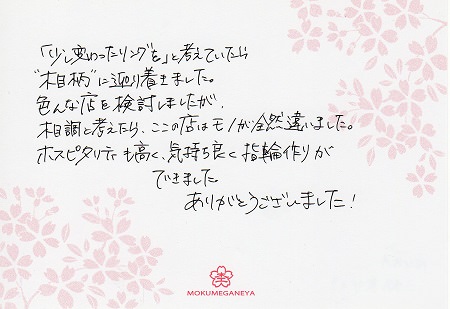 「少し変わったリングを」と考えていたら
"木目柄"に辿り着きました。
色んな店を検討しましたが、
木目調と考えたら、ここの店はモノが全然違いました。
ホスピタリティも高く、気持ち良く指輪作りが
できました
ありがとうございました！
MOKUMEGANEYA